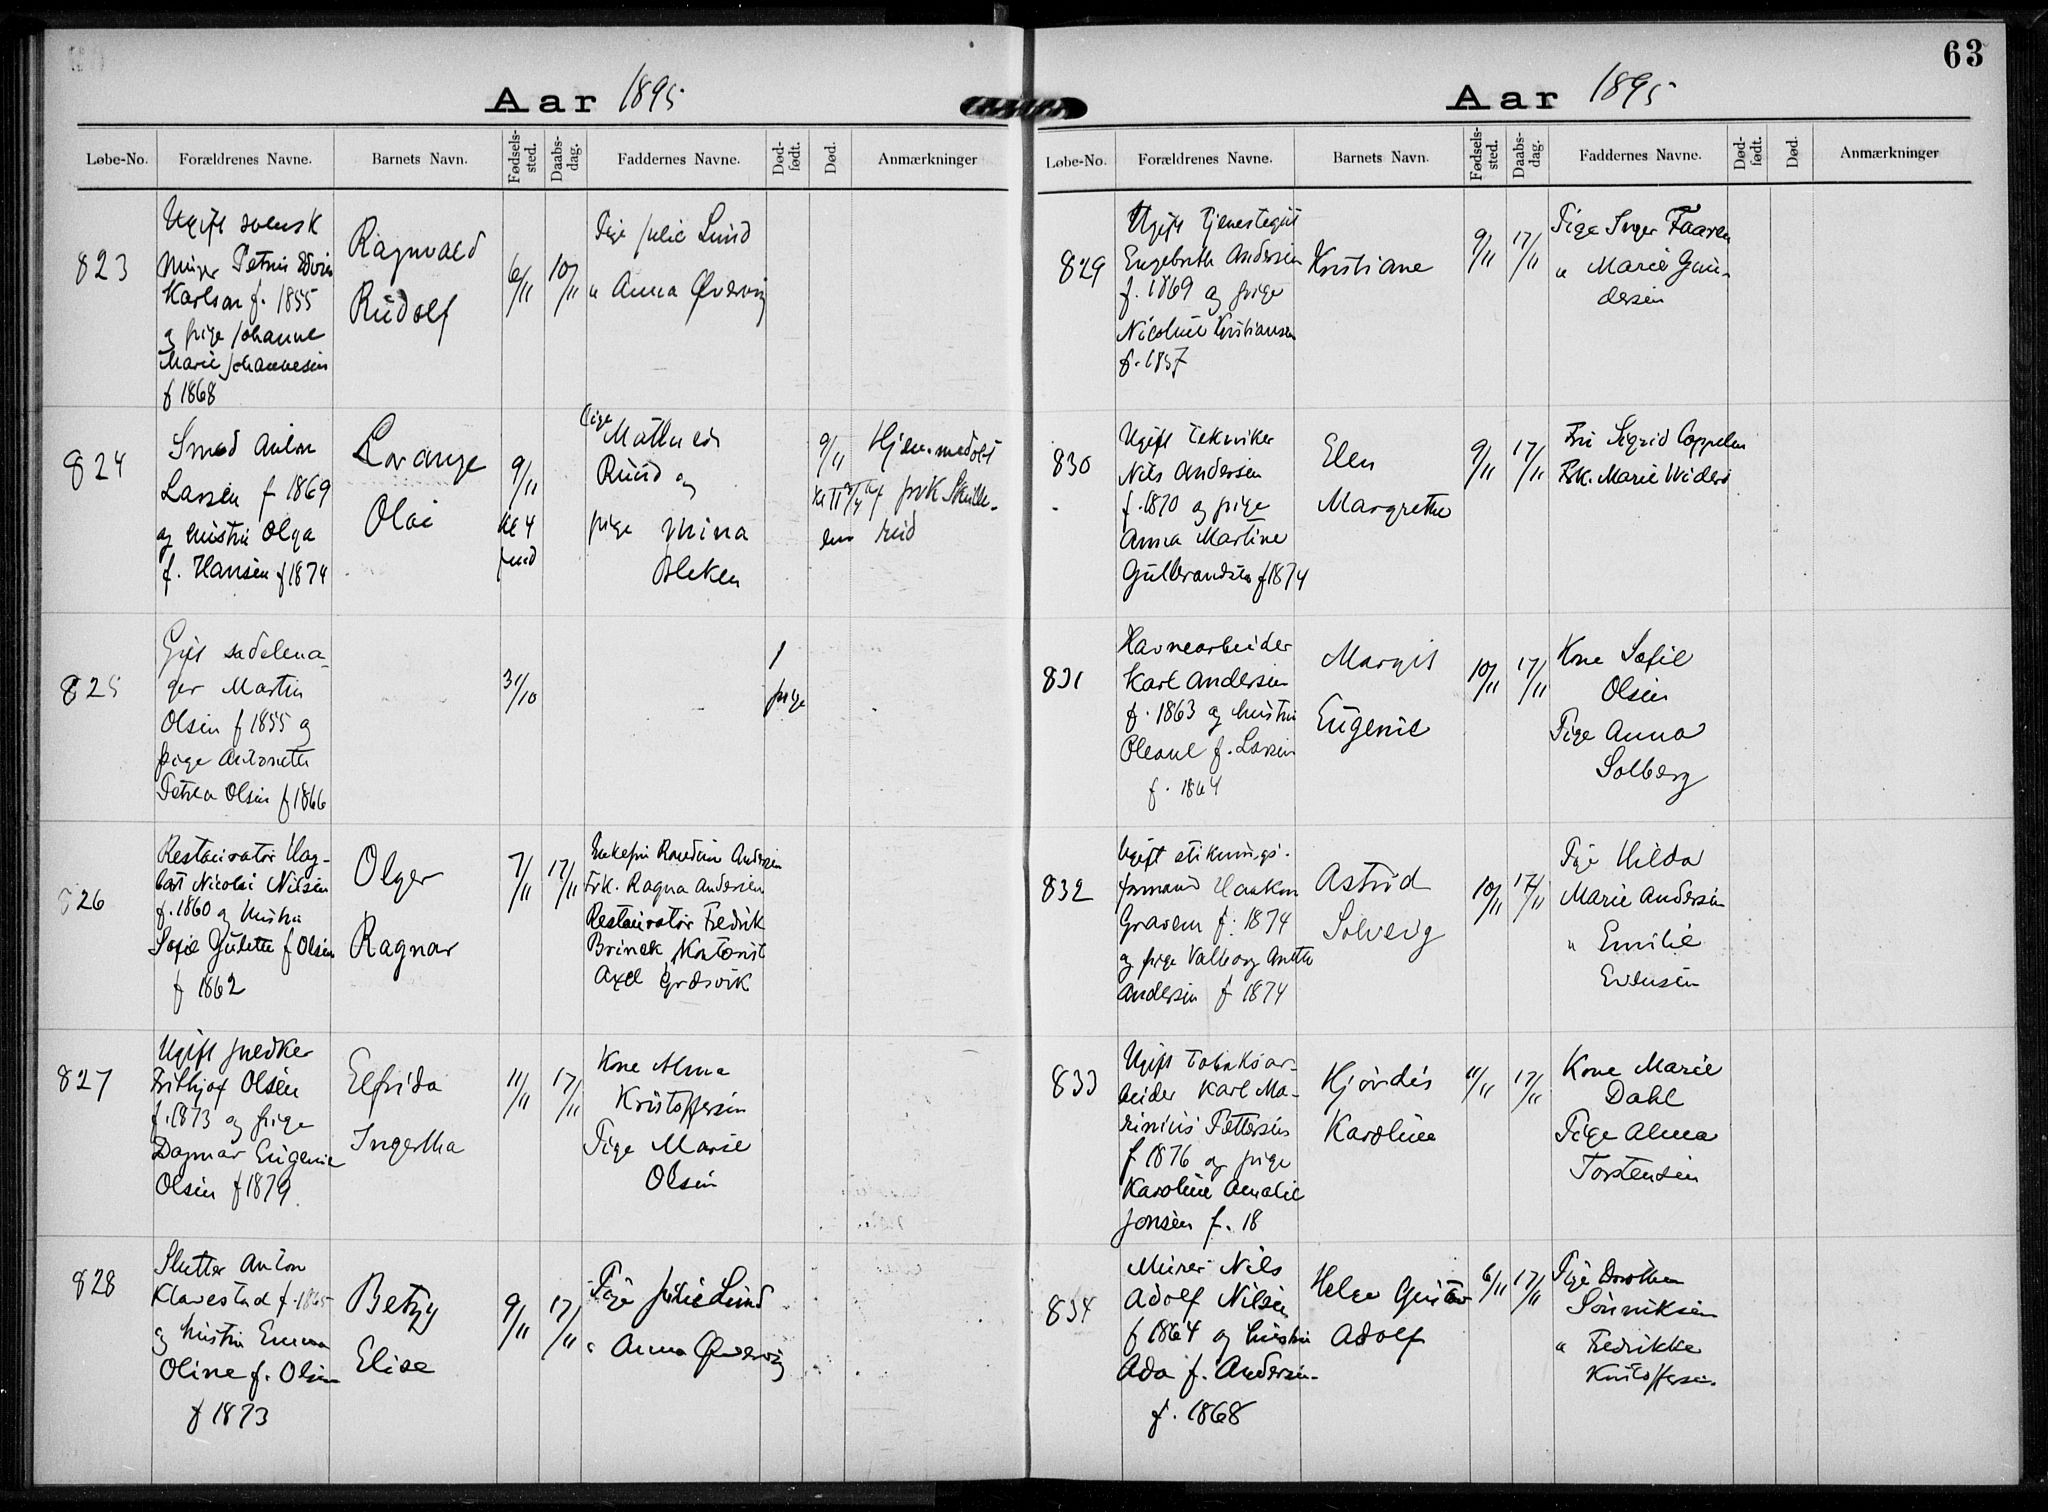 Aar 1895
Løbe-No. Forældrenes Navne. Barnets Navn. Fødsels-sted. Daabs-dag. Faddernes Navne. Død-født. Død. Anmærkninger
823
Ugift svensk
Murer Petrus
Karlson f. 1855
og pige Johanne
Marie Johannesen
f 1868
Ragnvald
Rudolf
6/11
10/11
Pige Julie Lund
" Anna Øvervig
824
Smed Anton
Larsen f 1869
og hustru Olga
f. Hansen f 1874
Lorange
Olai
9/11
Kl 4
Pige
Mathilde
Ruud og
pige Mina
Bleken
9/11
Hjemmedøbt
af frk
825
Gift sadelma-
ger Martin
Olsen f 1855 og
pige Antonette
Petrea Olsen f 1866
31/10
1
pige
826
Restauratør Hag-
bart Nicolai Nilsen
f. 1860 og Hustru
Sofie Julette f Olsen
f 1862
Olger
Ragnar
7/11
17/11
Enkefru Andersen
Frk. Ragna Andersen
Restauratør Fredrik
Brinck, Kontorist
Axel Græsvik
827
Ugift snedker
Frithjof Olsen
f. 1873 og pige
Dagmar Eugenie
Olsen f 1879
Elfrida
Ingertha
11/11
17/11
Kone Alma
Kristoffersen
Pige Marie
Olsen
828
Slutter Anton
Klavestad f. 1865
og hustru Emma
Oline f. Olsen
f 1873
Betzy
Elise
9/11
17/11
Pige Julie Lund
" Anna Øvervig
63
Aar 1895
Løbe-No. Forældrenes Navne. Barnets Navn. Fødsels-sted. Daabs-dag. Faddernes Navne. Død-født. Død. Anmærkninger
829
Ugift Tjenestegut
Engebreth Andersen
f. 1869 og pige
Nicoline Kristiansen
f. 1857
Kristiane
9/11
17/11
Pige Inger Faaren
" Marie Gun-
dersen
830
Ugift Tekniker
Nils Andersen
f. 1870 og pige
Anna Martine
Gulbrandsen f 1874
Elen
Margrethe
9/11
17/11
Fru Sigrid Cappelen
Frk. Marie Widerø
831
Havnearbeider
Karl Andersen
f. 1863 og hustru
Oleane f. Larsen
f. 1864
Margit
Eugenie
10/11
17/11
Kone Sofie
Olsen
Pige Anna
Solberg
832
Ugift stiknings-
formand Haakon
Gravem f. 1874
og pige Valborg Anette
Andersen f 1874
Astrid
Solveig
10/11
17/11
Pige Hilda
Marie Andersen
" Emilie
Evensen
833
Ugift Tobaksar-
beider Karl Ma-
rinius Pettersen
f 1876 og pige
Karoline Amalie
Jonsen f. 18
Hjørdis
Karoline
11/11
17/11
Kone Marie
Dahl
Pige Alma
Torstensen
834
Murer Nils
Adolf Nilsen
f 1864 og hustru
Ada f. Andersen
f. 1868
Helge Gustav
Adolf
6/11
17/11
Pige Dorothea
Sønniksen
" Fredrikke
Kristoffersen.